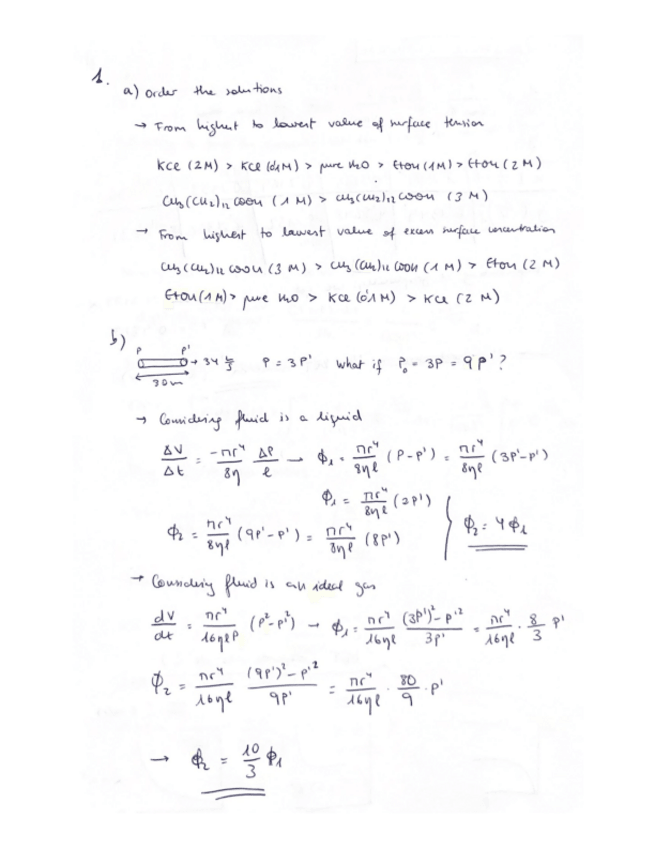 1.
a) Order the solutions
→ From highest to lowest value of surface tension
KCl (2M) > KCl (0'1M) > pure H₂O > EtOH (1M) > EtOH (2M)
CH₃(CH₂)₁₂COOH (1M) > CH₃(CH₂)₁₂COOH (3M)
→ From highest to lowest value of excess surface concentration
CH₃(CH₂)₁₂COOH (3M) > CH₃(CH₂)₁₂COOH (1M) > EtOH (2M)
EtOH (1M) > pure H₂O > KCl (0'1M) > KCl (2M)
b)
P P'
→ 34 L/s P = 3P' what if P₀ = 3P = 9P'?
30m
→ Considering fluid is a liquid
ΔV/Δt = -πr⁴/8η ΔP/ℓ → ϕ₁ = πr⁴/8ηℓ (P-P') = πr⁴/8ηℓ (3P'-P')
ϕ₁ = πr⁴/8ηℓ (2P')
ϕ₂ = πr⁴/8ηℓ (9P'-P') = πr⁴/8ηℓ (8P') ϕ₂ = 4ϕ₁
→ Considering fluid is an ideal gas
dV/dt = πr⁴/16ηℓP (P²-P'²) → ϕ₁ = πr⁴/16ηℓ (3P')²-P'²/3P' = πr⁴/16ηℓ · 8/3 P'
ϕ₂ = πr⁴/16ηℓ (9P')²-P'²/9P' = πr⁴/16ηℓ · 80/9 · P'
→ ϕ₂ = 10/3 ϕ₁